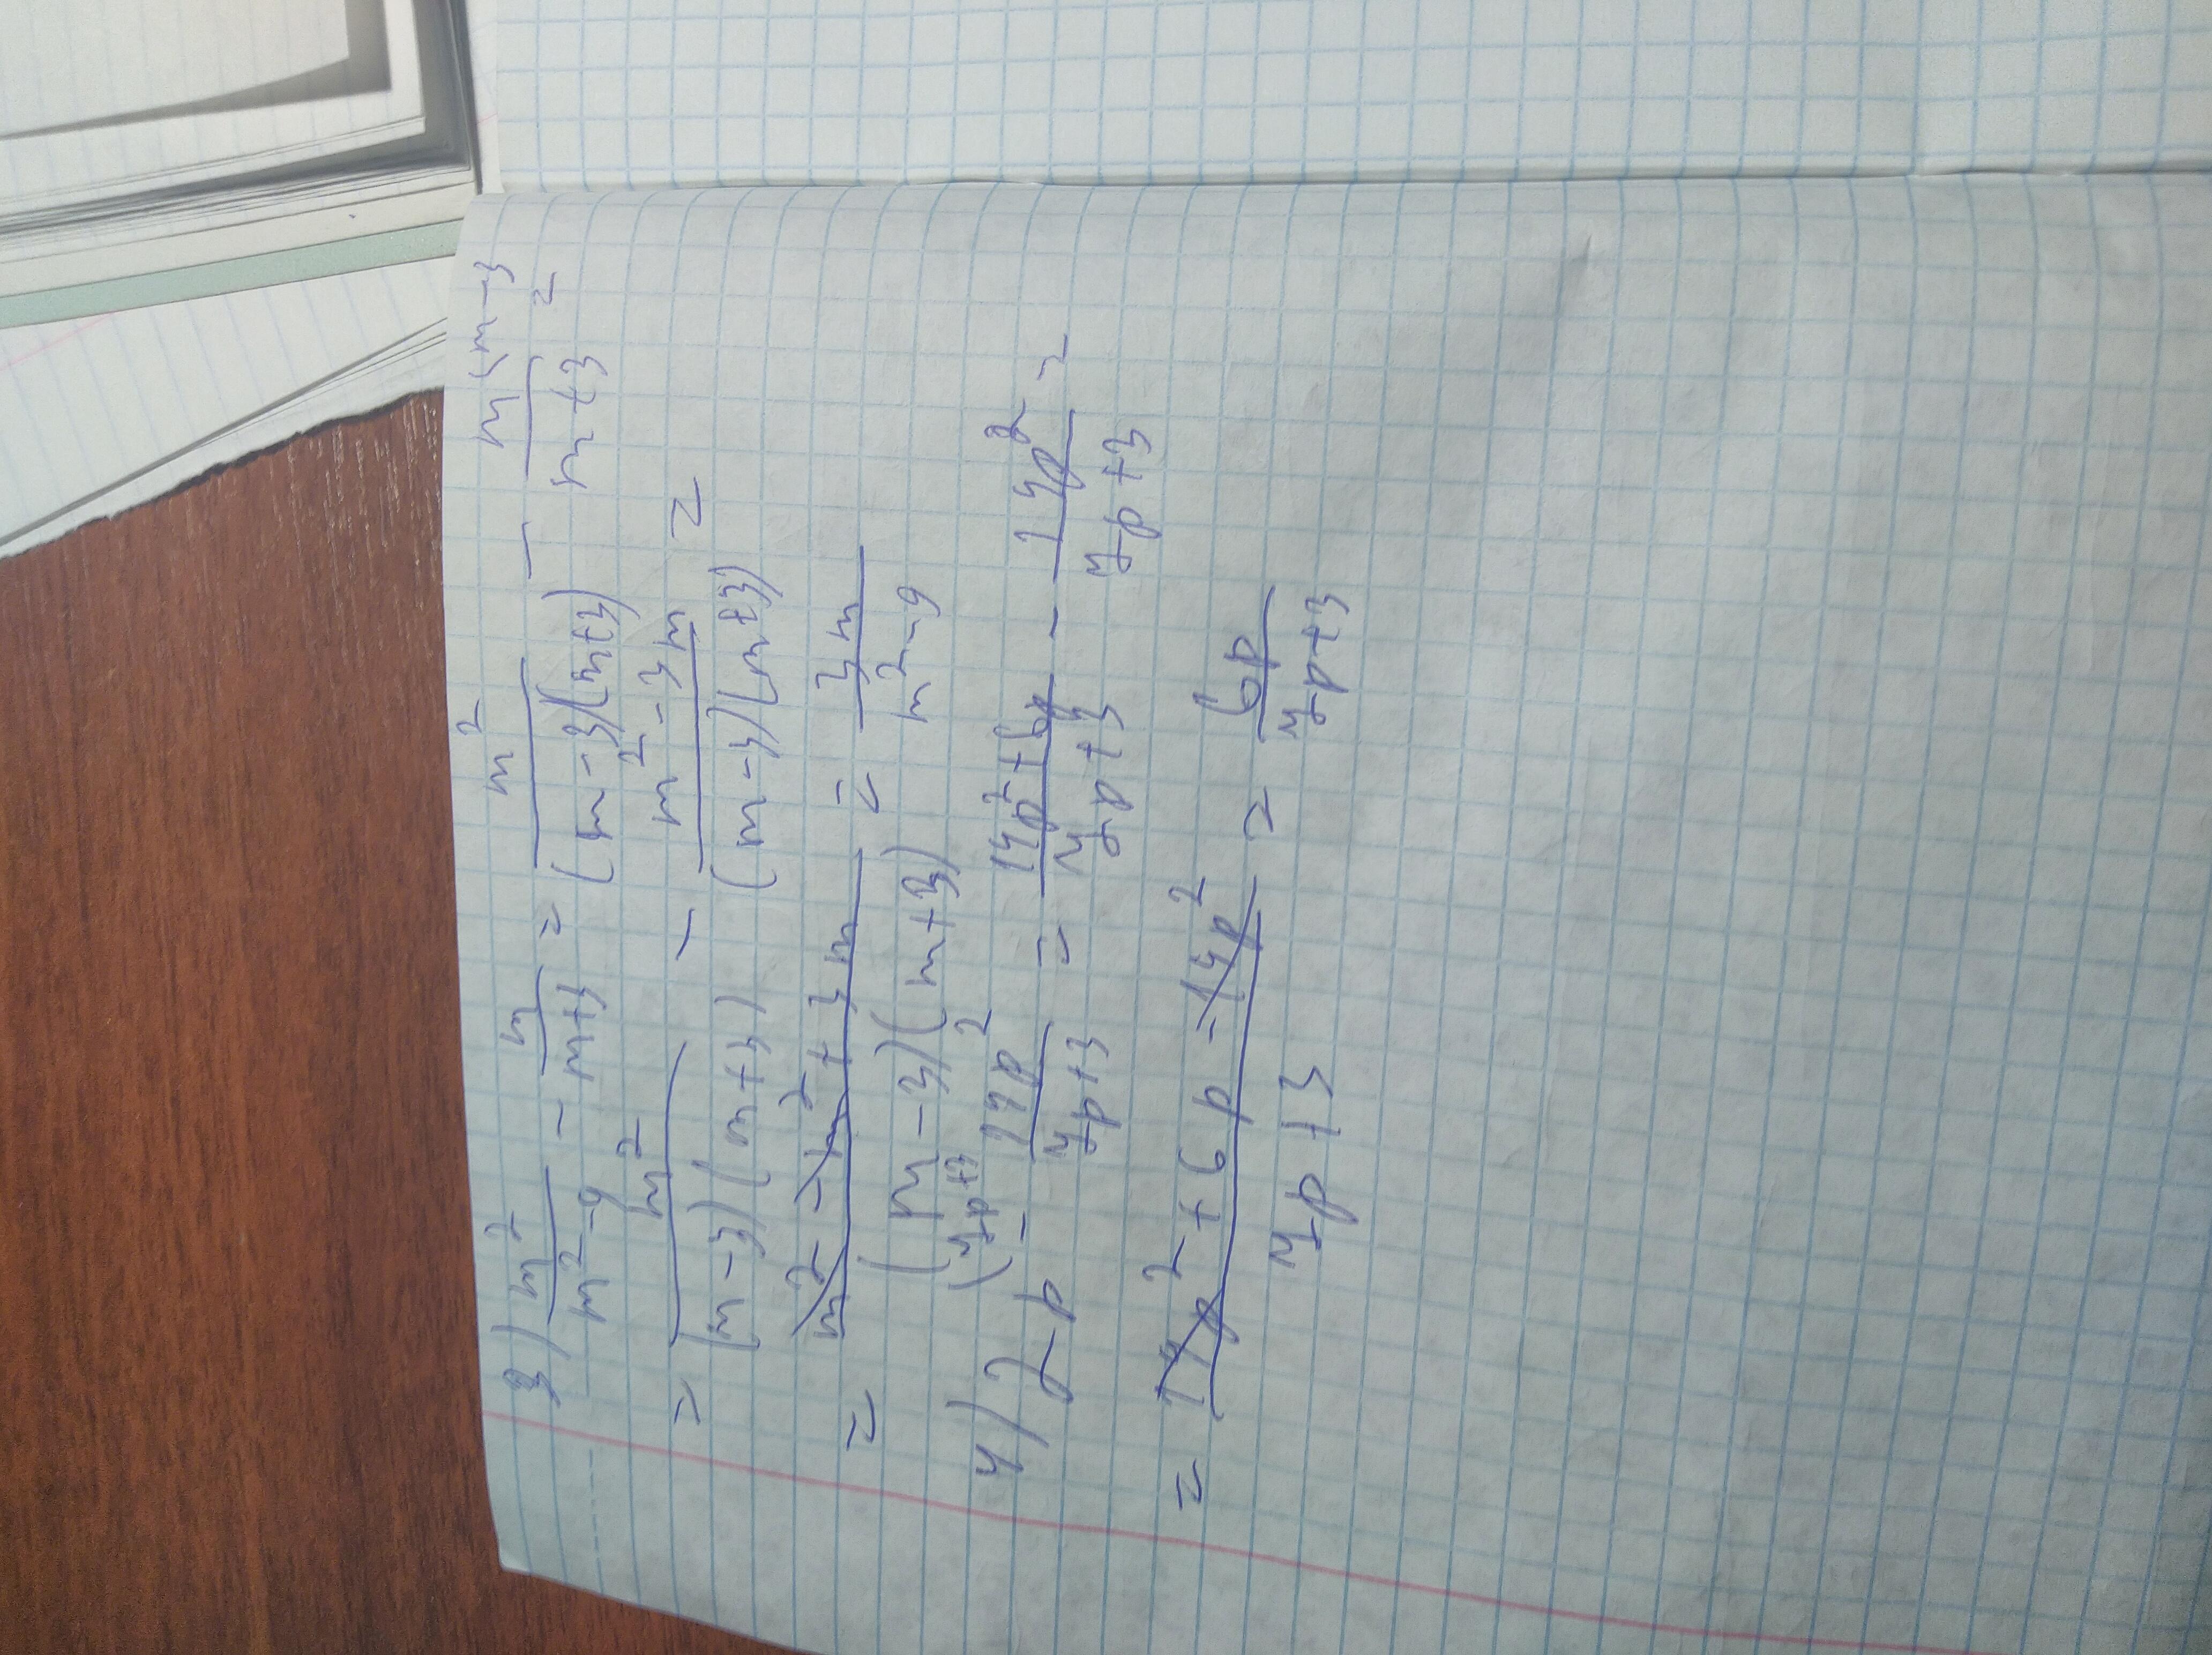 3) m²/(m²-9) - m/(m+3) = m²/((m-3)(m+3)) - m(m-3/(m+3) =
= m²/((m-3)(m+3)) - (m²-3m)/((m-3)(m+3)) =
= (m²-m²+3m)/((m-3)(m+3)) = 3m/(m²-9)
4) 2p (7p+3 - 14p²/(7p+3) = (14p²+6p)/(7p+3) - 14p²/(7p+3) =
= (14p²+6p-14p²)/(7p+3) = 6p/(7p+3)